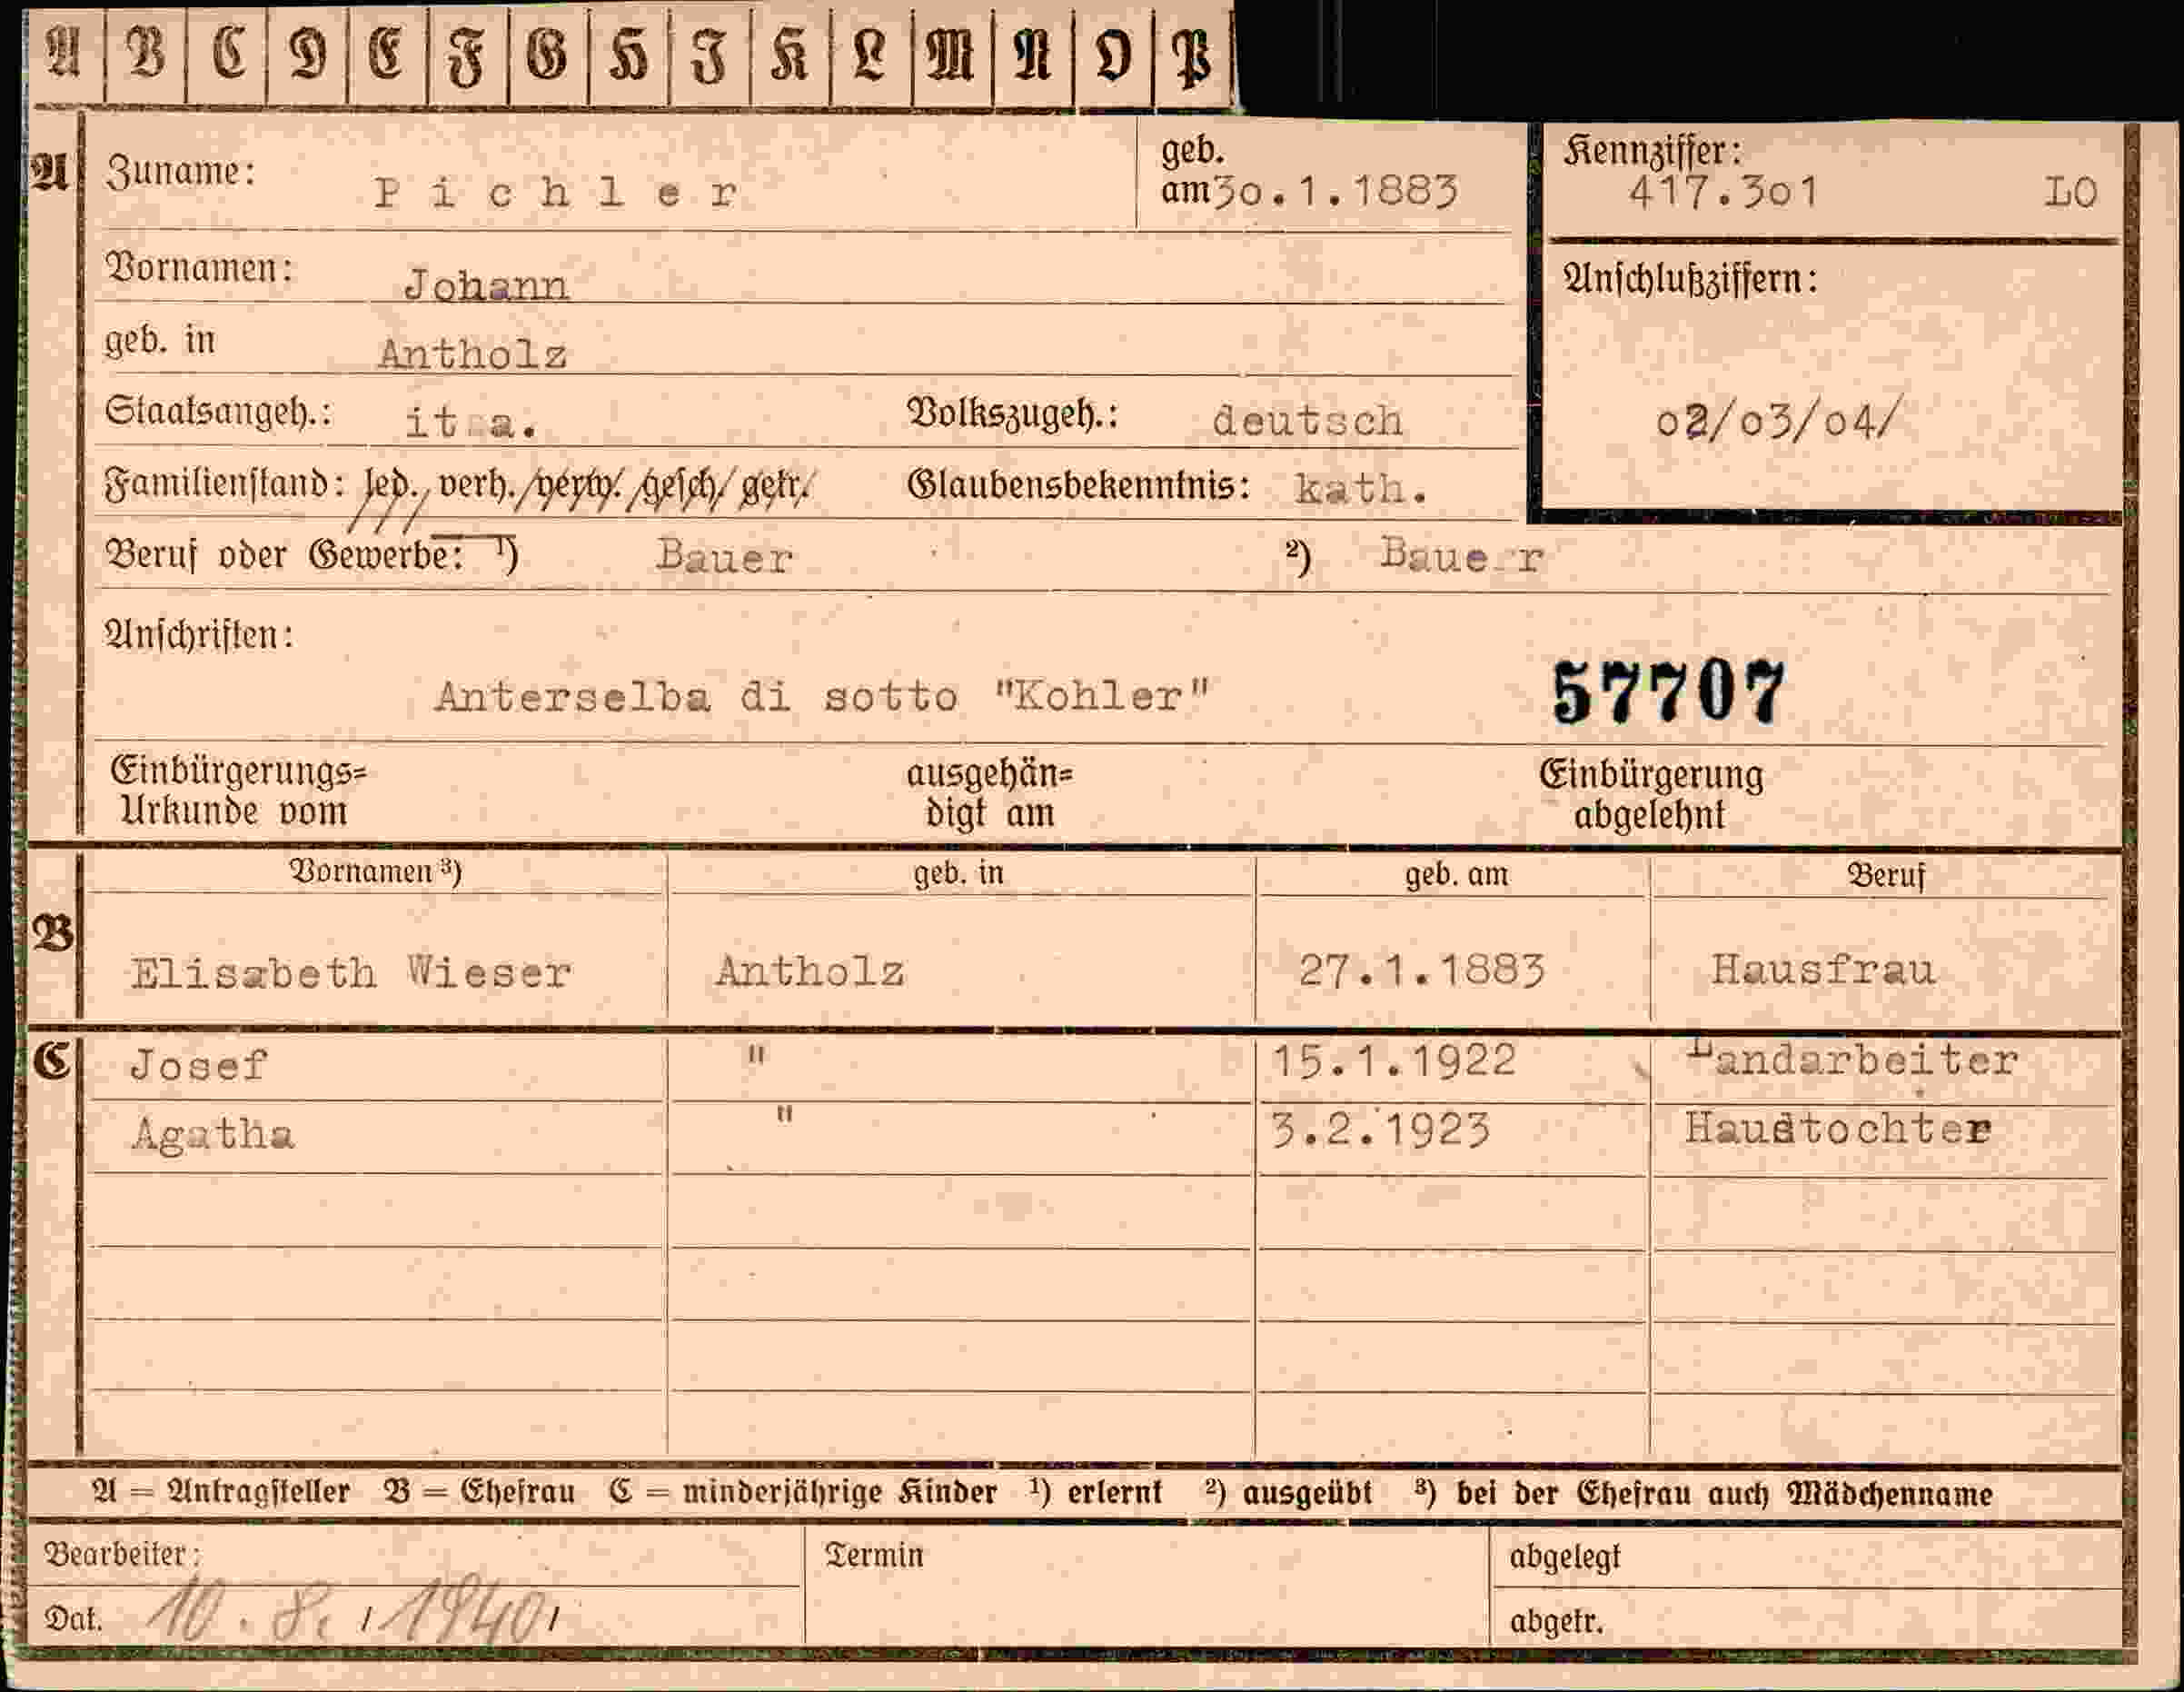 A B C D E F G H I K L M N O P
A Zuname: Pichler geb. am 30.1.1883 Kennziffer: 417.301 LO
Vornamen: Johann
Anschlußziffern:
geb. in Antholz
Staatsangeh.: it a. Volkszugeh.: deutsch
02/03/04/
Familienstand: led., verh./verw./gesch/getr/ Glaubensbekenntnis: kath.
Beruf oder Gewerbe: 1) Bauer 2) Baue r
Anschriften:
Anterselba di sotto "Kohler" 57707
Einbürgerungs= ausgehän= Einbürgerung
Urkunde vom digt am abgelehnt
Vornamen 3) geb. in geb. am Beruf
B
Elisabeth Wieser Antholz 27.1.1883 Hausfrau
C Josef " 15.1.1922 Landarbeiter
Agatha " 3.2.1923 Haustochter
A = Antragsteller B = Ehefrau C = minderjährige Kinder 1) erlernt 2) ausgeübt 3) bei der Ehefrau auch Mädchenname
Bearbeiter: Termin abgelegt
Dat. 10. 8. 1940 abgetr.